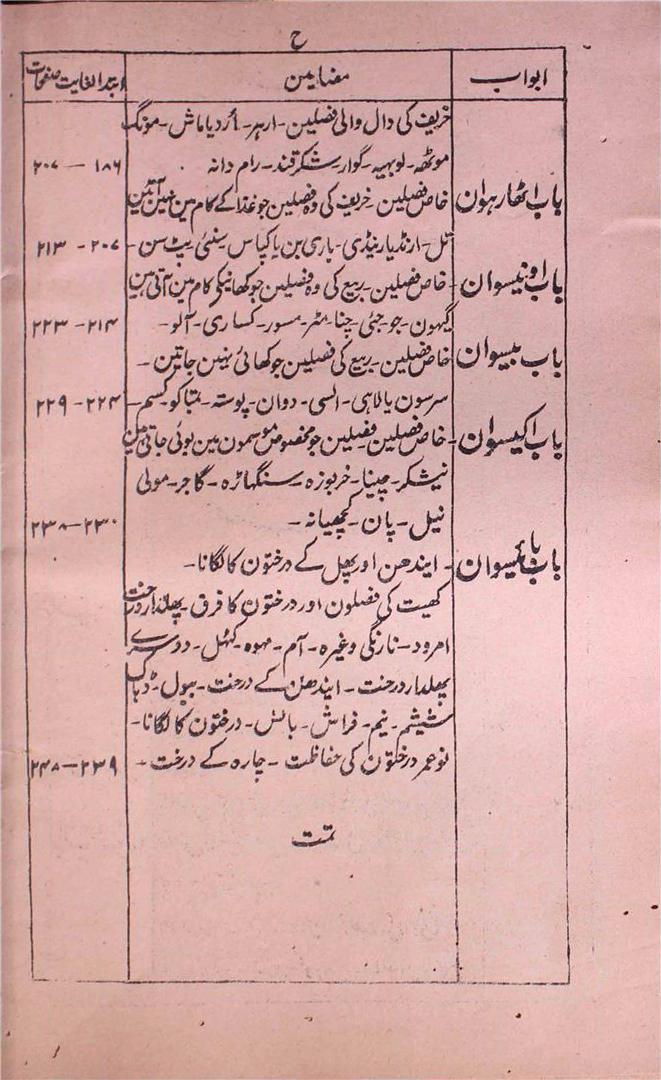 ح
ابواب مضامین ابتدا لغایت صفحات
خریف کی دال والی فصلین - ارہر - اُرد یا ماش - مونگ
موٹھہ - لوبیہ - گوار - شکر قند - رام دانہ ۱۸۶ — ۲۰۷
باب اٹھارہوان خاص فصلین - خریف کی وہ فصلین جو غذا کے کام مین نہین آتین
تل - ارنڈ یا رینڈی - باری بن یا کپاس سنئی پٹ سن - ۲۰۷ - ۲۱۳
باب اونیسوان خاص فصلین - ربیع کی وہ فصلین جو کھانیکے کام مین آتی ہین
گیہون - جو - جئی - چنا - مٹر - مسور - کساری - آلو - ۲۱۴ - ۲۲۳
باب بیسوان خاص فصلین - ربیع کی فصلین جو کھائی نہین جاتین -
سرسون یا لاہی - السی - دوان - پوستہ - تمباکو کسم - ۲۲۴ - ۲۲۹
باب اکیسوان - خاص فصلین - فصلین جو مخصوص موسمون مین بوئی جاتی ہین
نیشکر - چینا - خربوزہ - سنگھاڑہ - گاجر - مولی
نیل - پان - کچھیانہ - ۲۳۰ - ۲۳۸
باب بائیسوان - ایندھن اور پھل کے درختون کا لگانا -
کھیت کی فصلون اور درختون کا فرق - پھلدار درخت
امرود - نارنگی وغیرہ - آم - مہوہ - کٹہل - دوسرے
پھلدار درخت - ایندھن کے درخت - ببول - ڈہاک
شیشم - نیم - فراش - بانس - درختون کا لگانا -
نوعمر درختون کی حفاظت - چارہ کے درخت - ۲۳۹ — ۲۴۸
تمت